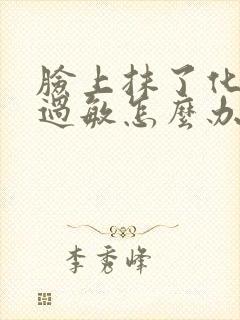 臉上抹了化
過敏怎麼办
李秀峰